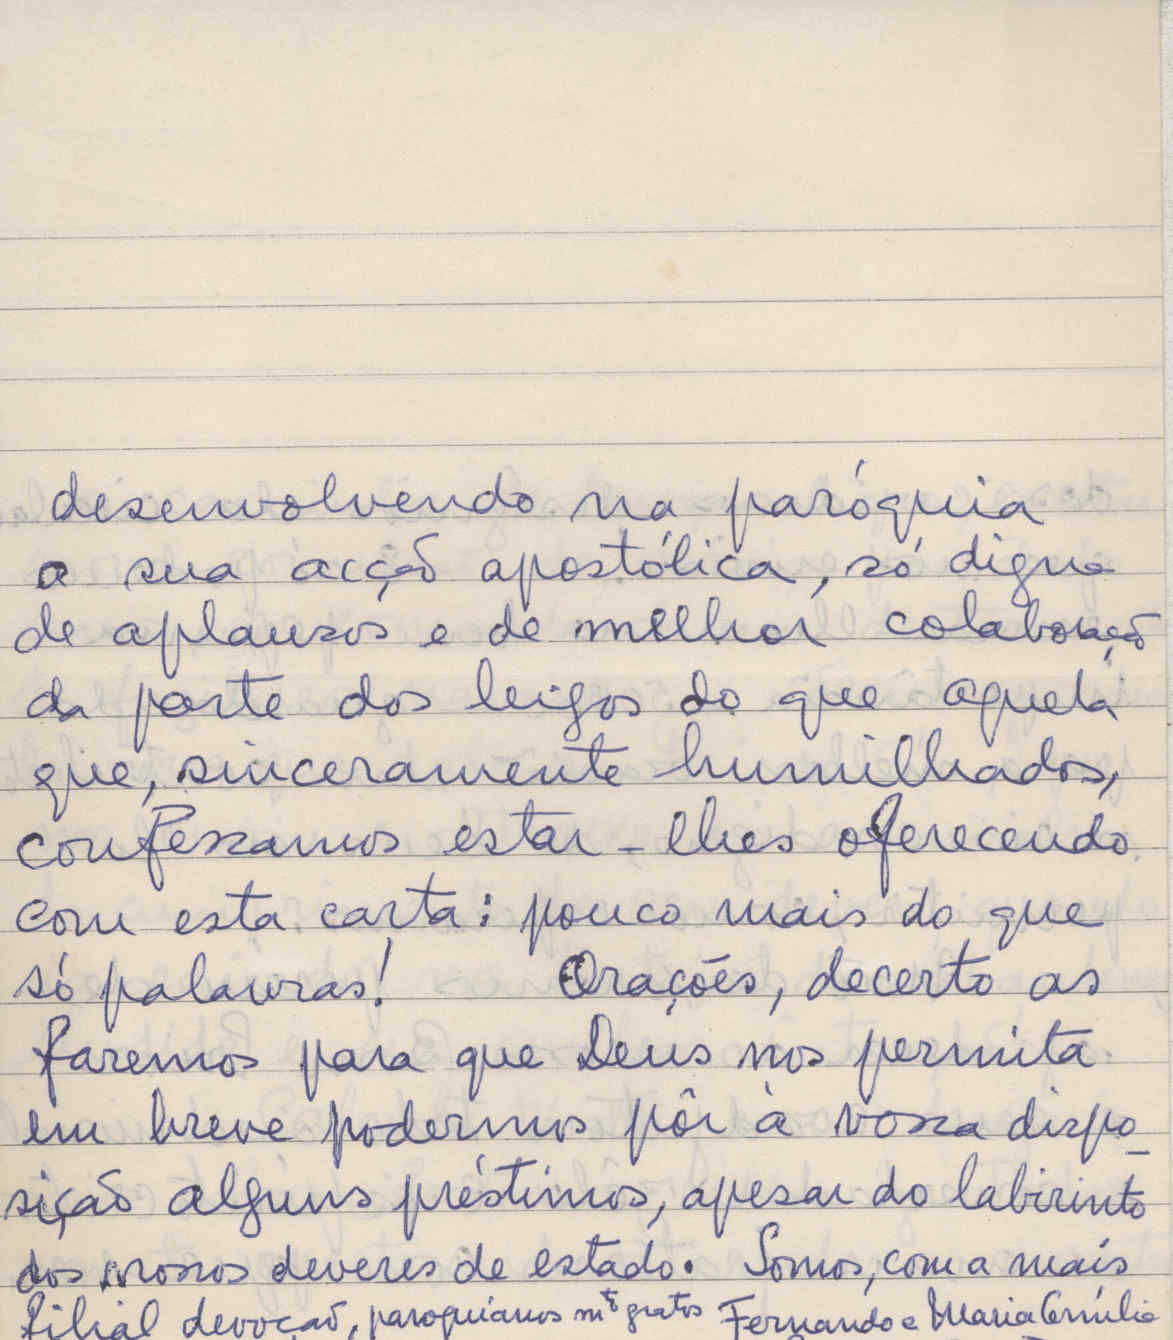 desenvolvendo na paróquia
a sua acção apostólica, só digna
de aplausos e de melhor colaboração
da parte dos leigos do que aquela
que, sinceramente humilhados,
confessamos estar-lhes oferecendo
com esta carta: pouco mais do que
só palavras! Orações, decerto as
faremos para que Deus nos permita
em breve podermos pôr à vossa dispo-
sição alguns préstimos, apesar do labirinto
dos nossos deveres de estado. Somos, com a mais
filial devoção, paroquianos mtº gratos Fernando e Maria Emília